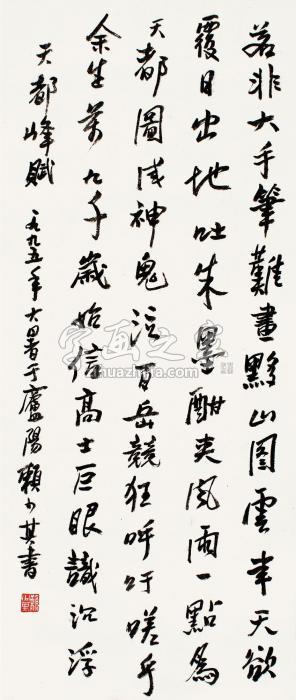 若非大手筆難畫黟山图雲来天欲
覆日出地吐朱墨酣夹風雨一點為
天都圖成神鬼泣百岳競狂呼吁嗟乎
余生千歲始信高士巨眼識沉浮
天都峰賦 一九九五年大暑于廬陽賴少其書
字画之家